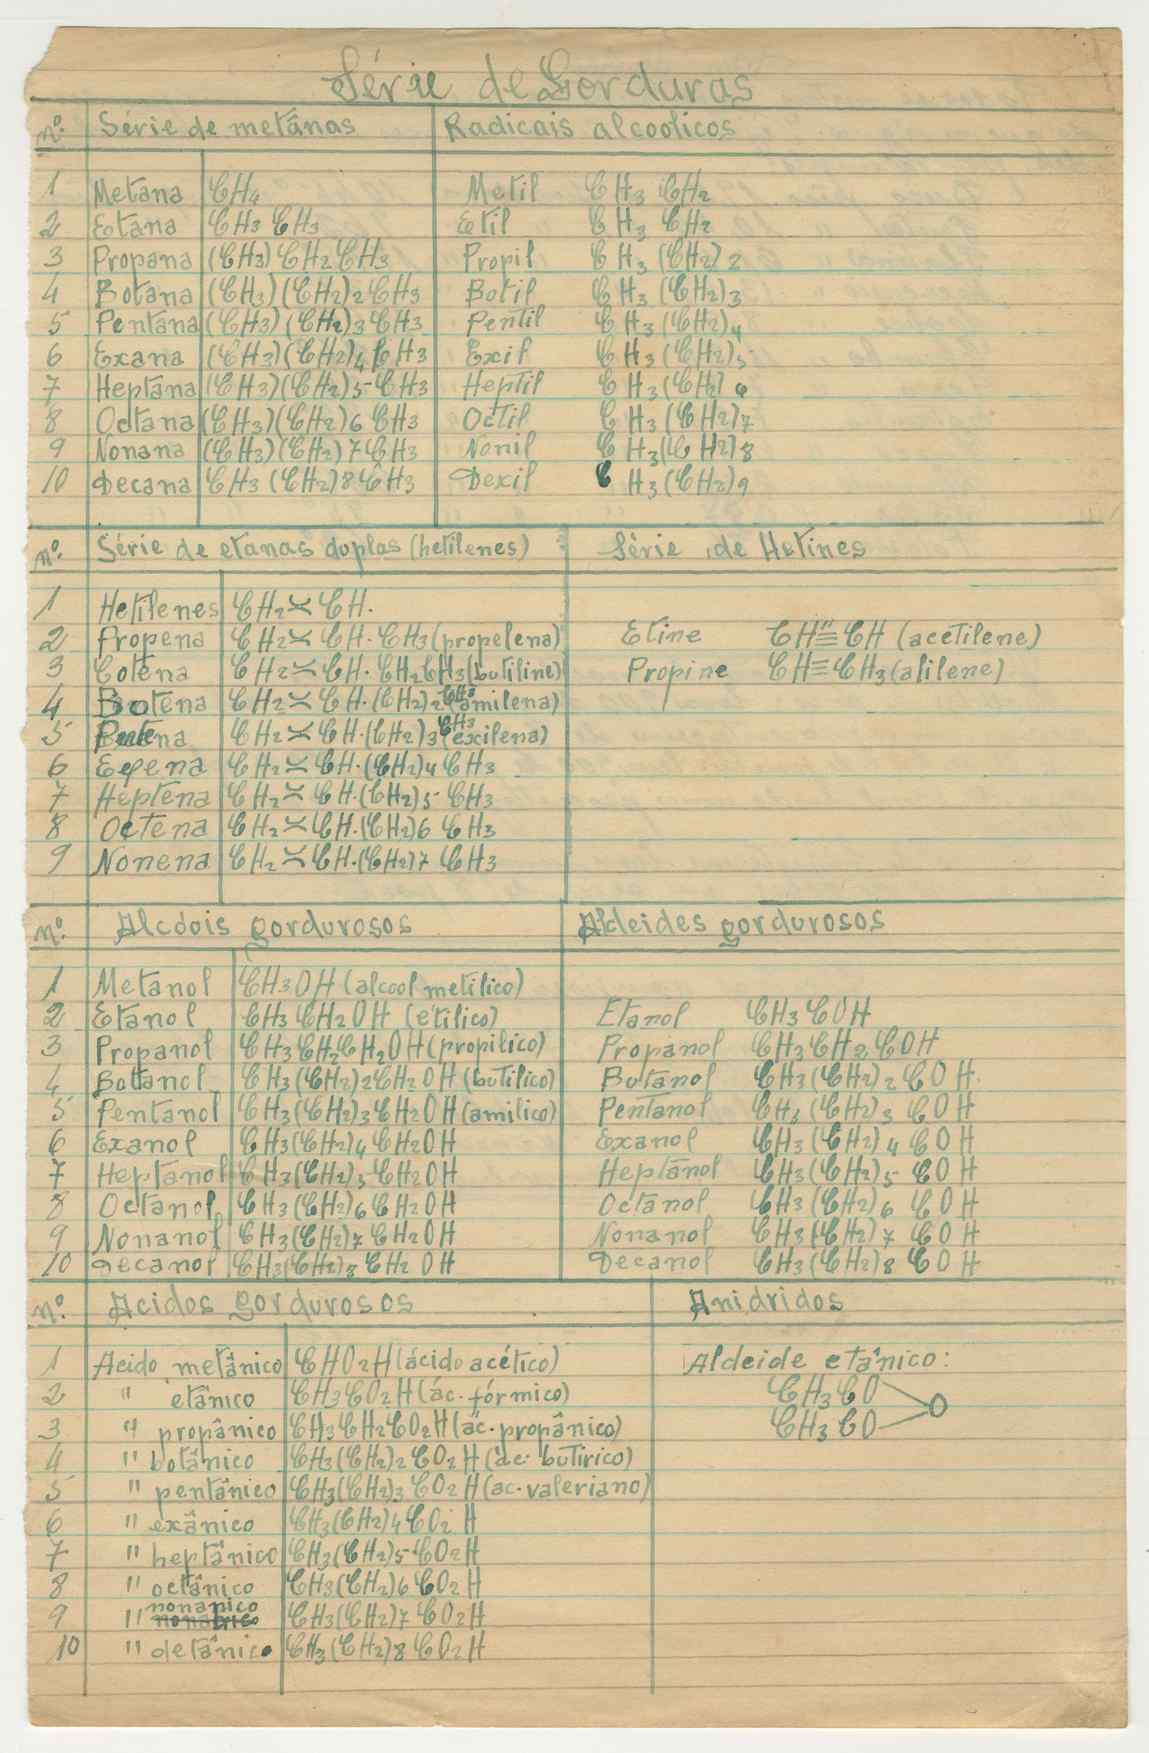 Série de Gorduras
Nº. Série de metânas Radicais alcoolicos
1 Metana CH4 Metil CH3 CH2
2 Etana CH3 CH3 Etil CH3 CH2
3 Propana (CH3) CH2 CH3 Propil CH3 (CH2) 2
4 Botana (CH3) (CH2)2 CH3 Botil CH3 (CH2)3
5 Pentana (CH3) (CH2)3 CH3 Pentil CH3 (CH2)4
6 Exana (CH3)(CH2)4 CH3 Exil CH3 (CH2)5
7 Heptana (CH3)(CH2)5 CH3 Heptil CH3 (CH2) 6
8 Octana (CH3)(CH2)6 CH3 Octil CH3 (CH2)7
9 Nonana (CH3)(CH2)7 CH3 Nonil CH3(CH2)8
10 Decana CH3 (CH2)8 CH3 Dexil CH3 (CH2)9
Nº. Série de etanas duplas (hetilenes) Série de Hetines
1 Hetilenes CH2 = CH.
2 Propena CH2 = CH. CH3 (propelena) Etine CH≡CH (acetilene)
3 Cotena CH2 = CH. CH2 CH3 (butiline) Propine CH≡CH3 (alilene)
4 Botena CH2 = CH. (CH2)2 CH3 (amilena)
5 Pentena CH2 = CH. (CH2)3 CH3 (exilena)
6 Exena CH2 = CH. (CH2)4 CH3
7 Heptena CH2 = CH. (CH2)5 CH3
8 Octena CH2 = CH. (CH2)6 CH3
9 Nonena CH2 = CH. (CH2)7 CH3
Nº. Alcóois gordurosos Aldeides gordurosos
1 Metanol CH3 OH (alcool metilico)
2 Etanol CH3 CH2 OH (etilico) Etanol CH3 COH
3 Propanol CH3 CH2 CH2 OH (propilico) Propanol CH3 CH2 COH
4 Bottanol CH3 (CH2)2 CH2 OH (butilico) Butanol CH3 (CH2)2 COH
5 Pentanol CH3 (CH2)3 CH2 OH (amilico) Pentanol CH3 (CH2)3 COH
6 Exanol CH3 (CH2)4 CH2 OH Exanol CH3 (CH2)4 COH
7 Heptanol CH3 (CH2)5 CH2 OH Heptanol CH3 (CH2)5 COH
8 Octanol CH3 (CH2)6 CH2 OH Octanol CH3 (CH2)6 COH
9 Nonanol CH3 (CH2)7 CH2 OH Nonanol CH3 (CH2)7 COH
10 Decanol CH3 (CH2)8 CH2 OH Decanol CH3 (CH2)8 COH
Nº. Acidos gordurosos Anidridos
1 Acido metânico CHO2H (ácido acético) Aldeide etânico:
2 " etânico CH3 CO2H (ác. fórmico) CH3 CO
3 " propânico CH3 CH2 CO2H (ac. propânico) CH3 CO O
4 " botânico CH3 (CH2)2 CO2H (ac. butirico)
5 " pentânico CH3 (CH2)3 CO2H (ac. valeriano)
6 " exânico CH3 (CH2)4 CO2H
7 " heptânico CH3 (CH2)5 CO2H
8 " octânico CH3 (CH2)6 CO2H
9 " nonanico CH3 (CH2)7 CO2H
10 " detânico CH3 (CH2)8 CO2H